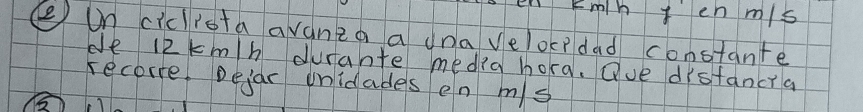 en km/h y en m/s
② Un ciclista avanza a una velocidad constante
de 12 km/h durante media hora. Que distancia
recorre. Dejar unidades en m/s
③